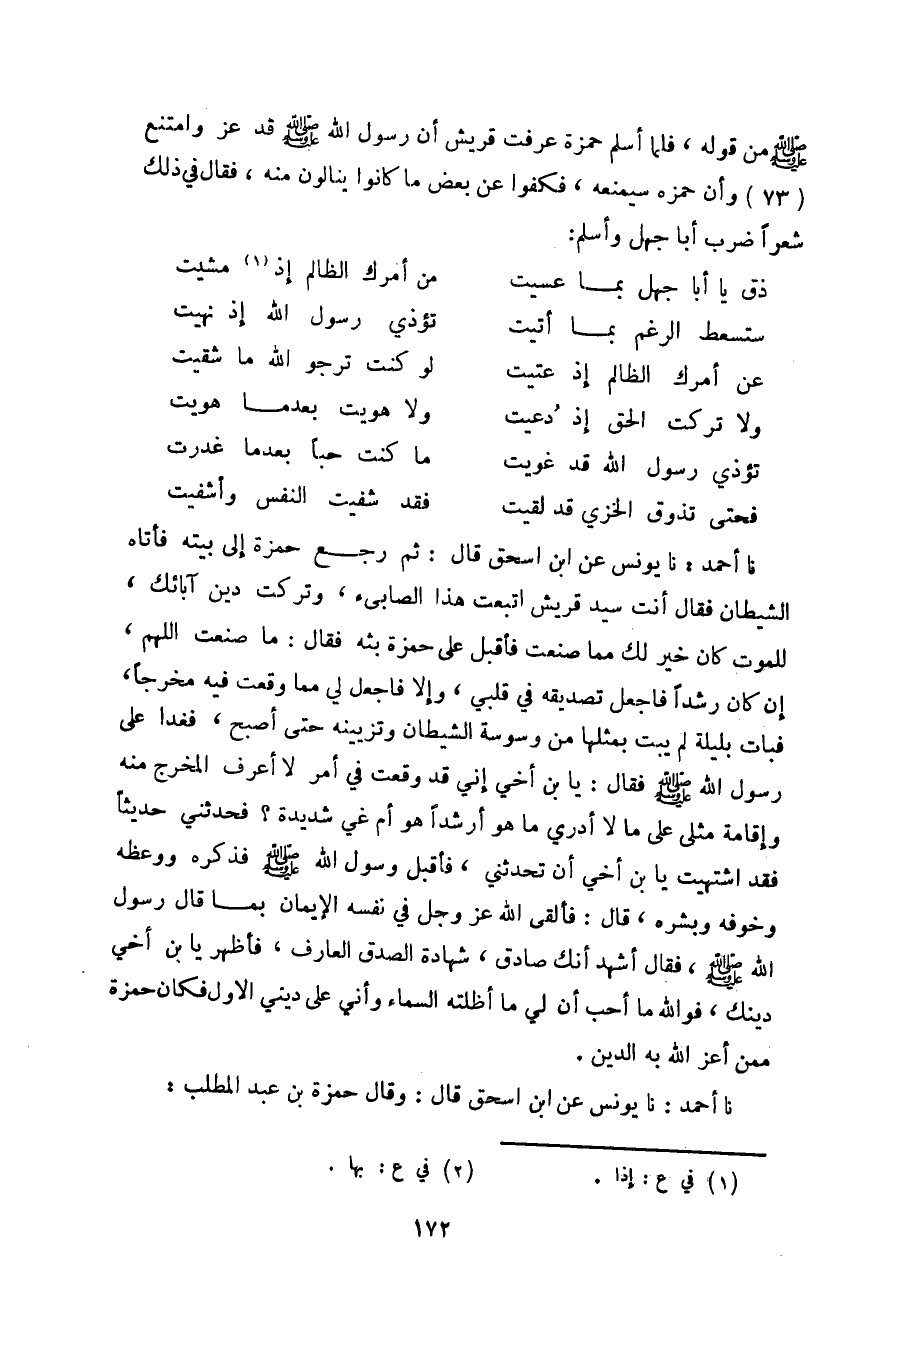 ﷺ من قوله ، فلما أسلم حمزة عرفت قريش أن رسول الله ﷺ قد عز وامتنع
( ٧٣ ) وأن حمزه سيمنعه ، فكفوا عن بعض ما كانوا ينالون منه ، فقال في ذلك
شعراً ضرب أبا جهل وأسلم:
ذق يا أبا جهل بمـــا عسيت من أمرك الظالم إذ (١) مشيت
ستسعط الرغم بمـــا أتيت تؤذي رسول الله إذ نهيت
عن أمرك الظالم إذ عتيت لو كنت ترجو الله ما شقيت
ولا تركت الحق إذ دُعيت ولا هويت بعدمـــا هويت
تؤذي رسول الله قد غويت ما كنت حباً بعدما غدرت
فحتى تذوق الخزي قد لقيت فقد شفيت النفس وأشفيت
نا أحمد : نا يونس عن ابن اسحق قال : ثم رجـــع حمزة إلى بيته فأتاه
الشيطان فقال أنت سيد قريش اتبعت هذا الصابىء ، وتركت دين آبائك ،
للموت كان خير لك مما صنعت فأقبل على حمزة بثه فقال : ما صنعت اللهم ،
إن كان رشداً فاجعل تصديقه في قلبي ، وإلا فاجعل لي مما وقعت فيه مخرجاً ،
فبات بليلة لم يبت بمثلها من وسوسة الشيطان وتزيينه حتى أصبح ، فغدا على
رسول الله ﷺ فقال : يا بن أخي إني قد وقعت في أمر لا أعرف المخرج منه
وإقامة مثلى على ما لا أدري ما هو أرشداً هو أم غي شديدة ؟ فحدثني حديثاً
فقد اشتهيت يا بن أخي أن تحدثني ، فأقبل وسول الله ﷺ فذكره ووعظه
وخوفه وبشره ، قال : فألقى الله عز وجل في نفسه الإيمان بمـــا قال رسول
الله ﷺ ، فقال أشهد أنك صادق ، شهادة الصدق العارف ، فأظهر يا بن أخي
دينك ، فوالله ما أحب أن لي ما أظلته السماء وأني على ديني الاول فكان حمزة
ممن أعز الله به الدين .
نا أحمد : نا يونس عن ابن اسحق قال : وقال حمزة بن عبد المطلب :
(١) في ع : إذا . (٢) في ع : بها .
١٧٢